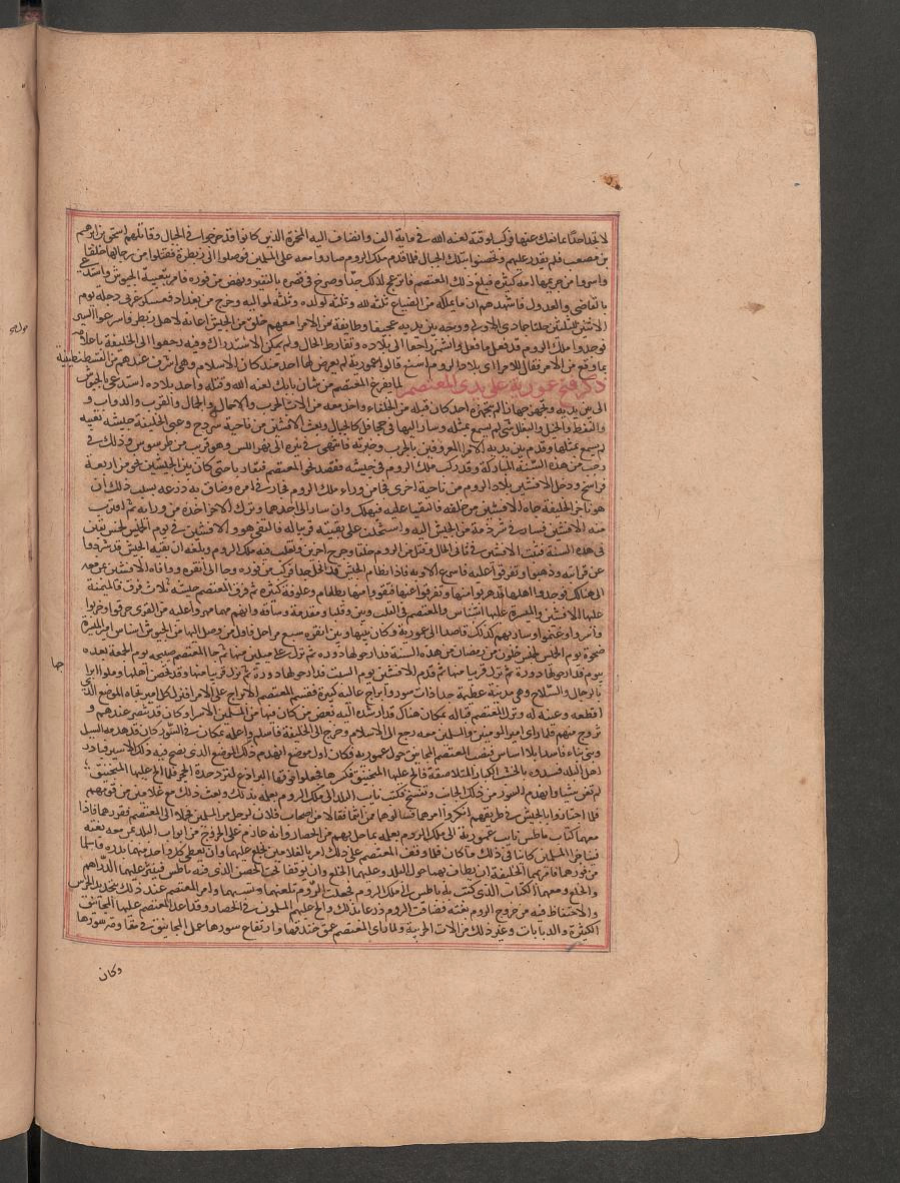 لا تجد احدًا يمانعك عنها فركب لوقته لعنه الله في ماية الف وانضاف اليه المحمرة الذين كانوا قد خرجوا في الجبال وقاتلهم اسحق بن ابرهيم
بن مصعب فلم يقدر عليهم وتحصنوا بتلك الجبال فلما قدم ملك الروم صاروا معه على المسلمين فوصلوا الى زبطرة فقتلوا من رجالها خلقا
واسروا من حريمها امة كثيرة فبلغ ذلك المعتصم فانزعج لذلك جدًا وصرخ في قصره بالنفير ونهض من فوره فامر بتعبية الجيوش واستدعى
بالقاضي والعدول فاشهدهم ان ما يملكه من الضياع ثلثه لله وثلثه لولده وثلثه لمواليه وخرج من بغداد فعسكر غربي دجلة يوم
الاثنين لليلتين خلتا من جمادى الاولى ووجه بين يديه عجيفا وطايفة من الامرا معهم خلق من الجيش اعانة لاهل زبطرة فاسرعوا السير
فوجدوا ملك الروم قد فعل ما فعل وانشمر راجعا الى بلاده وتفارط الحال ولم يمكن الاستدراك فيه فرجعوا الى الخليفة باعلامه
بما وقع من الامر فقال للامرا اي بلاد الروم امنع قالوا عمورية لم يعرض لها احد منذ كان الاسلام وهي اشرف عندهم من القسطنطينية
ذكر فتح عمورية على يدي المعتصم لما تفرغ المعتصم من شان بابك لعنه الله وقتله واخذ بلاده استدعى بالجيوش
الى بين يديه وتجهز جهازا لم يجهزه احد كان قبله من الخلفاء واخذ معه من الات الحرب والاحمال والجمال والقرب والدواب و
والنفط والخيل والبغال شي لم يسمع بمثله وسار اليها في جحافل كالجبال وبعث الافشين من ناحية سروج وعبى الخليفة جيشه تعبية
لم يسمع بمثلها وقدم بين يديه الامرا المعروفين بالحرب وخبرته فانتهى في سيره الى نهر اللس وهو قريب من طرسوس وذلك في
رجب من هذه السنة المباركة وقد ركب ملك الروم في جيشه فقصد نحو المعتصم فتقاربا حتى كان بين الجيشين نحو من اربعة
فراسخ ودخل الافشين بلاد الروم من ناحية اخرى فجا من وراء ملك الروم فحار في امره وضاق به ذرعه بسبب ذلك ان
هو ناجز الخليفة جاه الافشين من خلفه فالتقيا عليه فيهلك وان سار الى احدهما وترك الاخر اخذه من ورائه ثم اقترب
منه الافشين فسار في شرذمة من الجيش اليه واستخلف على بقيته قريبا له فالتقى هو والافشين في يوم الخميس لخمس بقين
في هذه السنة فثبت الافشين في ثاني الحال وقتل من الروم خلقا وجرح اخرين وتغلب فيه ملك الروم وبلغه ان بقية الجيش قد شردوا
عن قرابته وذهبوا وتفرقوا عليه فاسرع الاوبة فاذا نظام الجيش قد انحل فركب من فوره وجا الى انقره ووافاه الافشين بمن معه
الى هناك فوجدوا اهلها قد هربوا منها وتفرقوا عنها فتقووا منها بطعام وعلوفة كثيره ثم فرق المعتصم جيشه ثلاث فرق فالميمنة
عليها الافشين والميسرة عليها اشناس والمعتصم في القلب وبين كل عسكر
فاسروا وغنموا وساروا بهم كذلك قاصدا الى عمورية وكان بينها وبين انقره سبع مراحل فاول من وصل اليها من الجيوش اشناس امير الميسرة
ضحوة يوم الخميس لخمس خلون من رمضان من هذه السنة فدار حولها دورة ثم نزل على ميلين منها ثم جا المعتصم صبيحة يوم الجمعة بعده
بيوم فدار حولها دورة ثم نزل قريبا منها ثم قدم الافشين يوم السبت فدار حولها دورة ثم نزل قريبا منها وقد تحصن اهلها وملوا ابراجها
بالرجال والسلاح وهي مدينة عظيمة جدا ذات سور وابراج عالية كبيرة فقسم المعتصم الابراج على الامرا فنزل كل امير تجاه الموضع الذي
اقطعه وعينه له ونزل المعتصم قبالة بمكان هناك قد ارشد اليه بعض من كان فيها من المسلمين الاسرا وكان قد تنصر عندهم و
تزوج منهم فلما راى امير المومنين والمسلمين معه رجع الى الاسلام وخرج الى الخليفة فاسلم واعلمه بمكان في السور كان قد هدمه السيل
وبني بناء فاسدا بلا اساس فنصب المعتصم المجانيق حول عمورية فكان اول موضع انهدم ذلك الموضع الذي نصح فيه ذلك الاسير فبادر
اهل البلد فسدوه بالخشب الكبار المتلاصقة فالح عليها المنجنيق فكسرها فجعلوا فوقها البراذع لترد حدة الحجر فلما الح عليها المنجنيق
لم تغن شيا وانهدم السور من ذلك الجانب وتفسخ فكتب نايب البلد الى ملك الروم يعلمه بذلك وبعث ذلك مع غلامين من قومهم
فلما اجتازوا بالجيش في طريقهم انكروا امرهما فسالوهما ممن انتما فقالا من اصحاب فلان لرجل من المسلمين فحملا الى المعتصم فقررهما فاذا
معهما كتاب ماطس نايب عمورية الى ملك الروم يعلمه بما حل بهم من الحصار وانه عازم على الخروج من ابواب البلد بمن معه بغتة
فيناجز المسلمين كاينا في ذلك ما كان فلما وقف المعتصم على ذلك امر بالغلامين فخلع عليهما وان يعطى كل واحد منهما بدره فاسلما
من فورهما فامر بهما الخليفة ان يطاف بهما حول البلد وعليهما الخلع وان يوقفا تحت الحصن الذي فيه ماطس فينثر عليهما الدراهم
والخلع ومعهما الكتاب الذي كتب به ماطس الى ملك الروم فجعلت الروم تلعنهما وتسبهما وامر المعتصم عند ذلك بتجديد الحرس
والاحتفاظ فيه من خروج الروم بغتة فضاقت الروم ذرعا بذلك والح عليهم المسلمون في الحصار وقد اعد المعتصم عليها المجانيق
الكثيرة والدبابات وغير ذلك من الات الحربية ولما راى المعتصم عمق خندقها وارتفاع سورها عمل المجانيق في مقاومة سورها
وكان